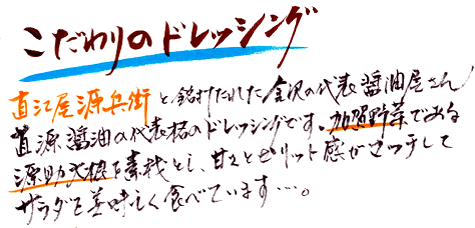 こだわりのドレッシング
直江屋源兵衛と銘打たれた金沢の代表醤油屋さん!
直源醤油の代表格のドレッシングです。加賀野菜である
源助大根を素材とし、甘さとピリット感がマッチして
サラダを美味しく食べています…。